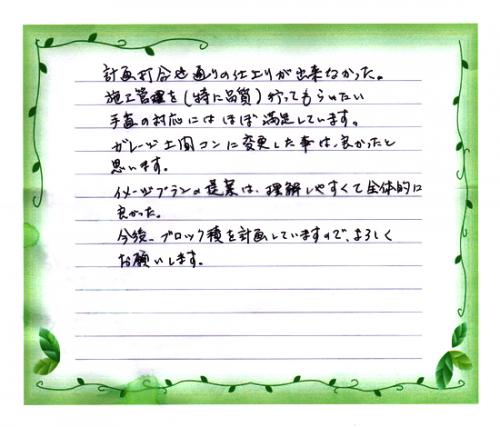 計画打合せ通りの仕上りが出来なかった。
施工管理を(特に品質)行ってもらいたい
手直の対応にはほぼ満足しています。
ガレージ土間コンに変更した事は、良かったと
思います。
イメージプランの提案は、理解しやすくて全体的に
良かった。
今後、ブロック積を計画していますので、よろしく
お願いします。